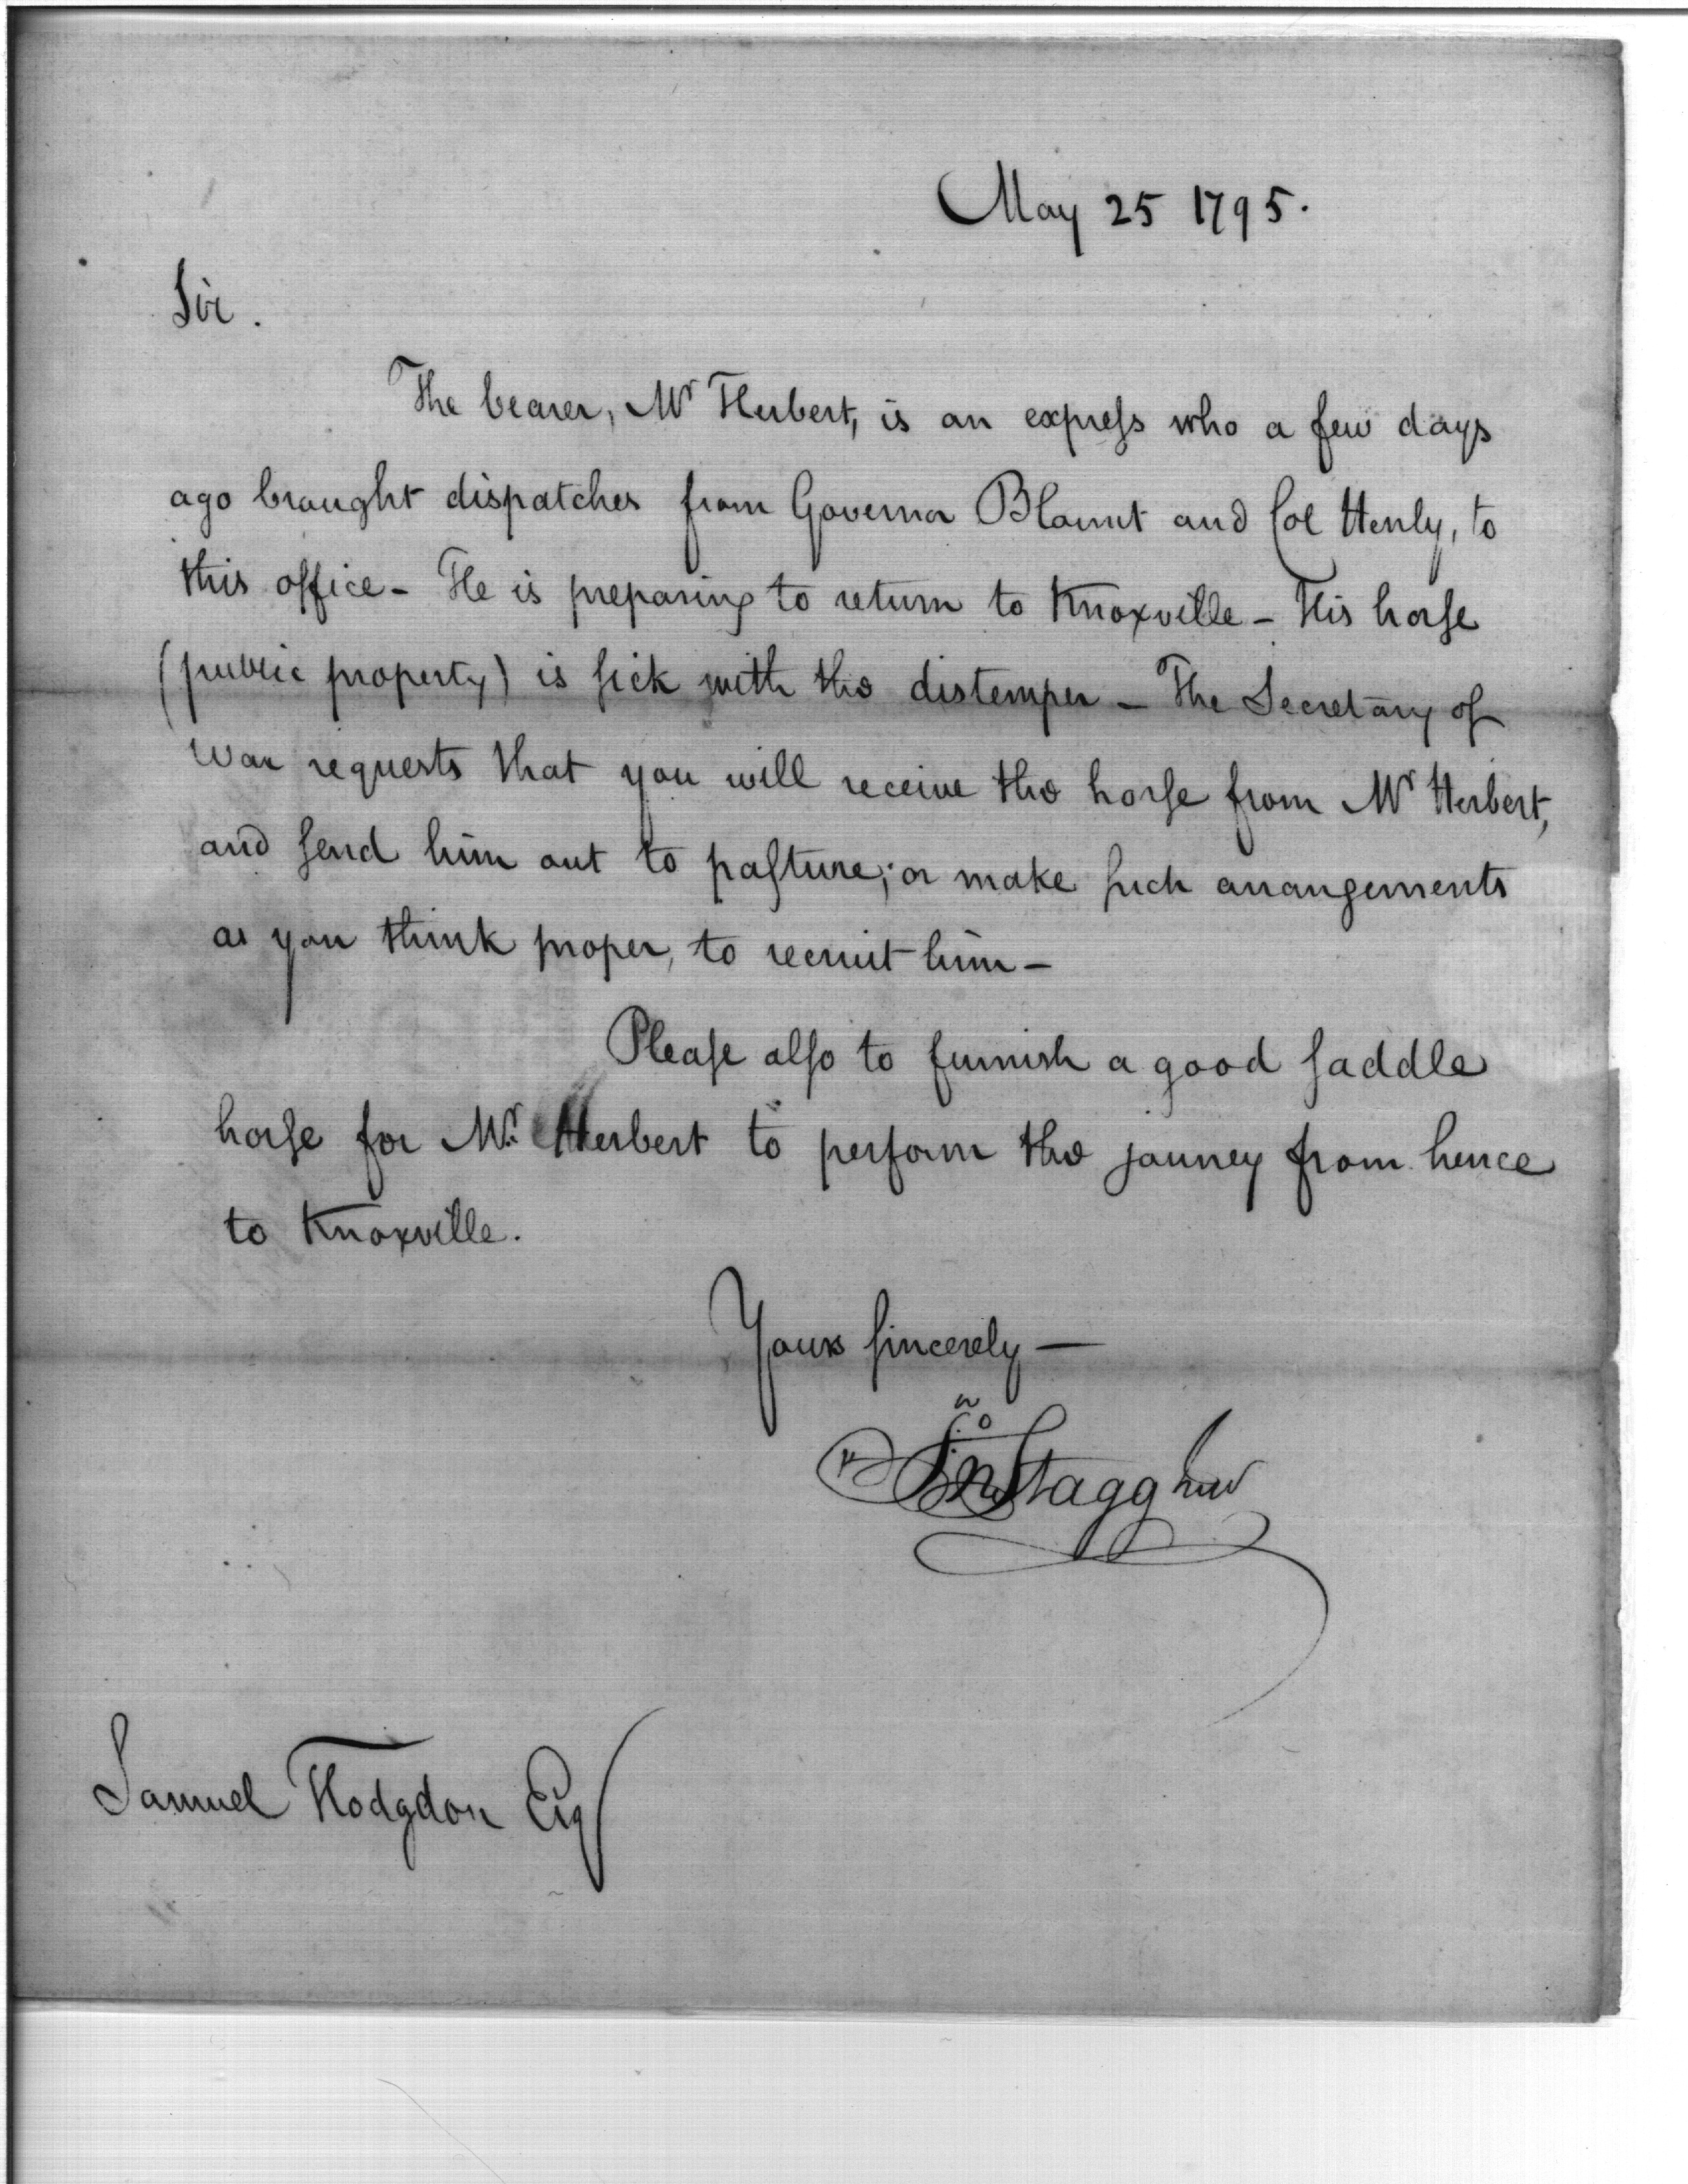 May 25 1795.
Sir.
The bearer, Mr Herbert, is an express who a few days
ago brought dispatches from Governor Blount and Col Henly, to
this office - He is preparing to return to Knoxville - His horse
(public property) is sick with the distemper - The Secretary of
War requests that you will receive the horse from Mr Herbert,
and send him out to pasture; or make such arrangements
as you think proper, to recruit him -
Please also to furnish a good saddle
horse for Mr. Herbert to perform the journey from hence
to Knoxville.
Yours sincerely —
Jno Stagg Junr
Samuel Hodgdon Esq